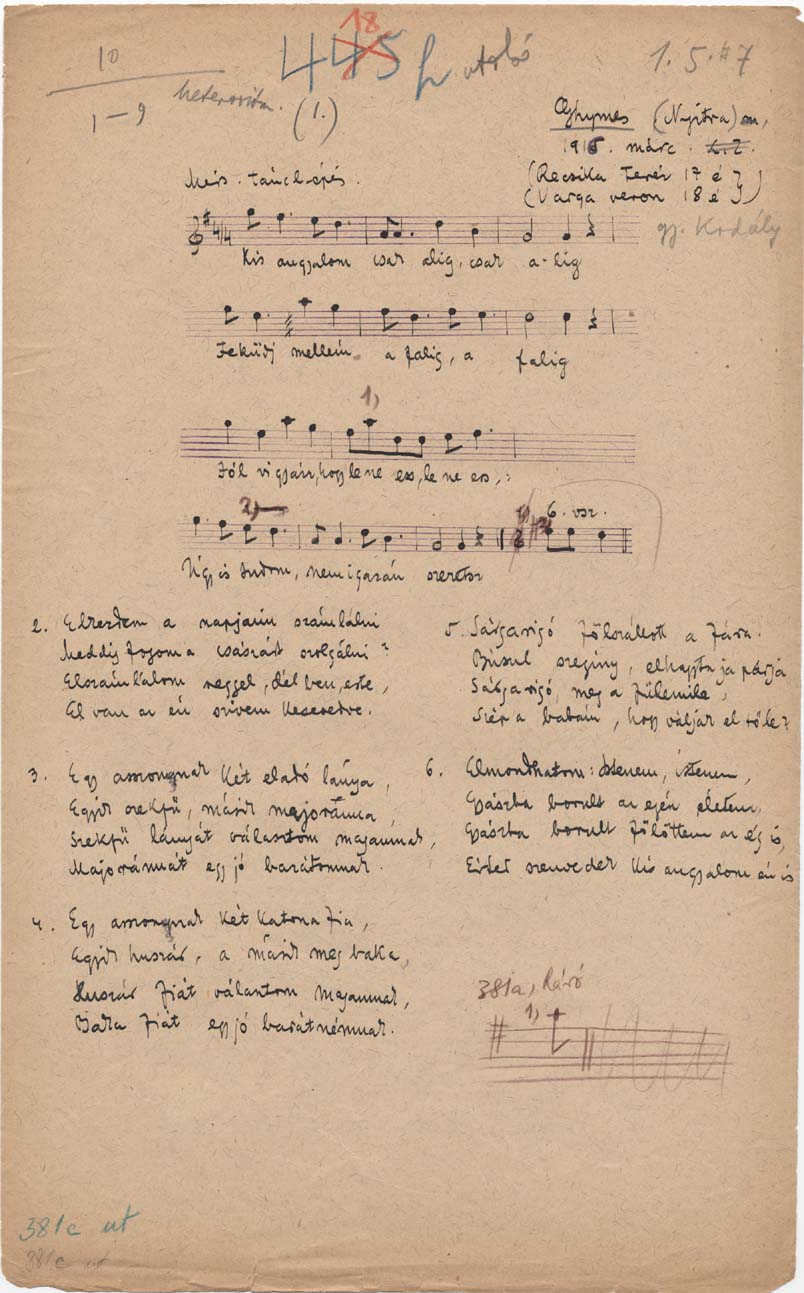 18
10
445 f utolsó
1. 5. #7
1–9
heteroritm.
(1.)
Ghymes (Nyitra) m,
1915. márc.
Mérs. tánclépés.
(Recsika Teréz 17 é)
(Varga veron 18 é)
gy. Kodály
4/4
Kis angyalom csak alig, csak a-lig
Feküdj mellém a falig, a falig
1,
Jól vigyázz, hogy le ne ess, le ne ess,:
2,
6. vsz.
Úgy is tudom, nem igazán szeretsz
2. Elkezdem a napjaim számlálni
Meddig fogom a császárt szolgálni?
Elszámlálom reggel, délben, este,
El van az én szívem keseredve.
3. Egy asszonynak két eladó lánya,
Egyik szekfű, másik majoránna,
Szekfű lányát választom magamnak,
Majoránnát egy jó barátomnak.
4. Egy asszonynak két katona fia,
Egyik huszár, a másik meg baka,
Huszár fiát választom magamnak,
Baka fiát egy jó barátnémnak.
5. Sárgarigó fölszállott a fára.
Búsul szegény, elhagyta ja párja
Sárgarigó, meg a fülemile,
Kér a babám, hogy váljak el tőle?
6. Elmondhatom: Istenem, istenem,
Gyászba borult az egén életem,
Gyászba borult fölöttem az ég is,
Érted szenvedek kis angyalom én is
381a, Ráró
1,
381c ut
381c ut